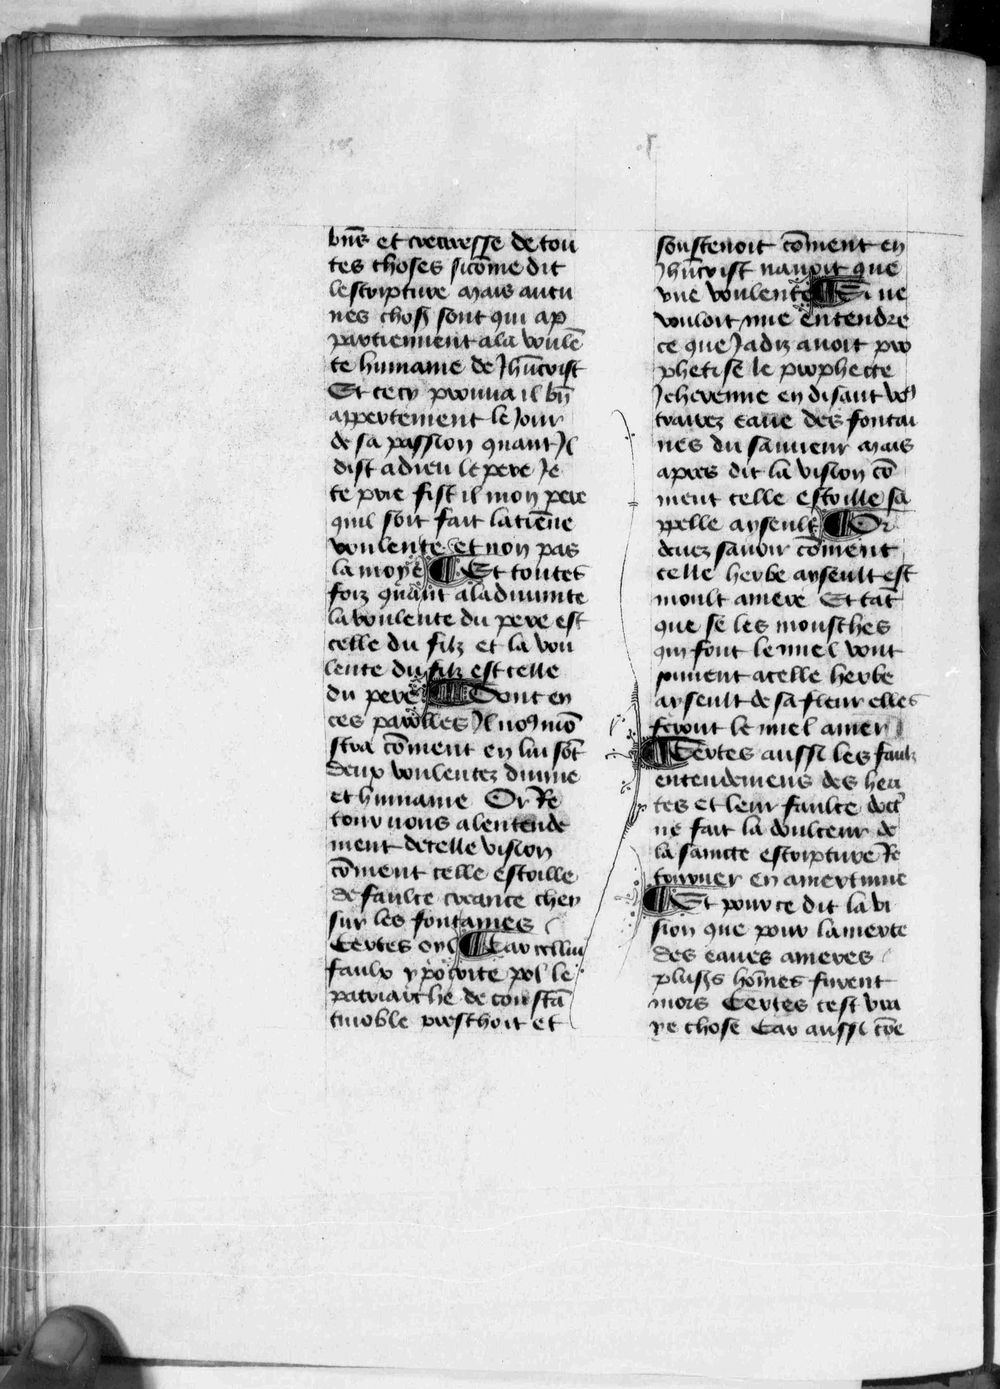 bñs et creerresse de tou
tes choses sicōme dit
lescripture mais aucu
nes chos̉ sont qui ap
partiennent ala voulē
te humaine de Jhūcrist
Et cecy prouua il bn̄
appertement le Jour
de sa passion quant Jl
dist a dieu le pere Je
te prie fist il mon pere
quil soit fait la tiēne
voulente et non pas
la moye ¶ Et toutes
foiz quāt ala diuinite
la voulente du pere est
celle du filz et la vou
lente du filz est celle
du pere ¶ Dont en
ces parolles Jl no9 mō
stra cōment en lui sōt
deux voulentez diuine
et humaine Or Re
tour nons a lentende
ment de celle vision
cōment celle estoille
de faulce creance chey
sur les fontaines
Certes oyl ¶ Car cellui
faulx ypocrite pol le
patriarche de constā
tinoble preschoit et
soustenoit cōment en
Jhūcrist nauoit que
vne voulente ¶ Si ne
vouloit mie entendre
ce que Jadiz auoit pro
phetise le prophecte
Jcheremie en disant vo9
trairez eaue des fontai
nes du sauueur mais
apres dit la vision cō
ment celle estoille sa
ppelle ayseult ¶ Or
deuez sauoir cōment
celle herbe ayseult est
moult amere Et tāt
que se les mousches
qui font le miel vont
puinent a celle herbe
ayseult de sa fleur elles
feront le miel amer
¶ Certes aussi les faulz
entendemens des heri
tes et leur faulce doct'
ne fait la doulceur de
la saincte escripture Re
tourner en amertume
¶ Et pour ce dit la vi
sion que pour lamerte
des eaues ameres
plus̉s hōmes furent
mors Certes cest vra
ye chose Car aussi cōe